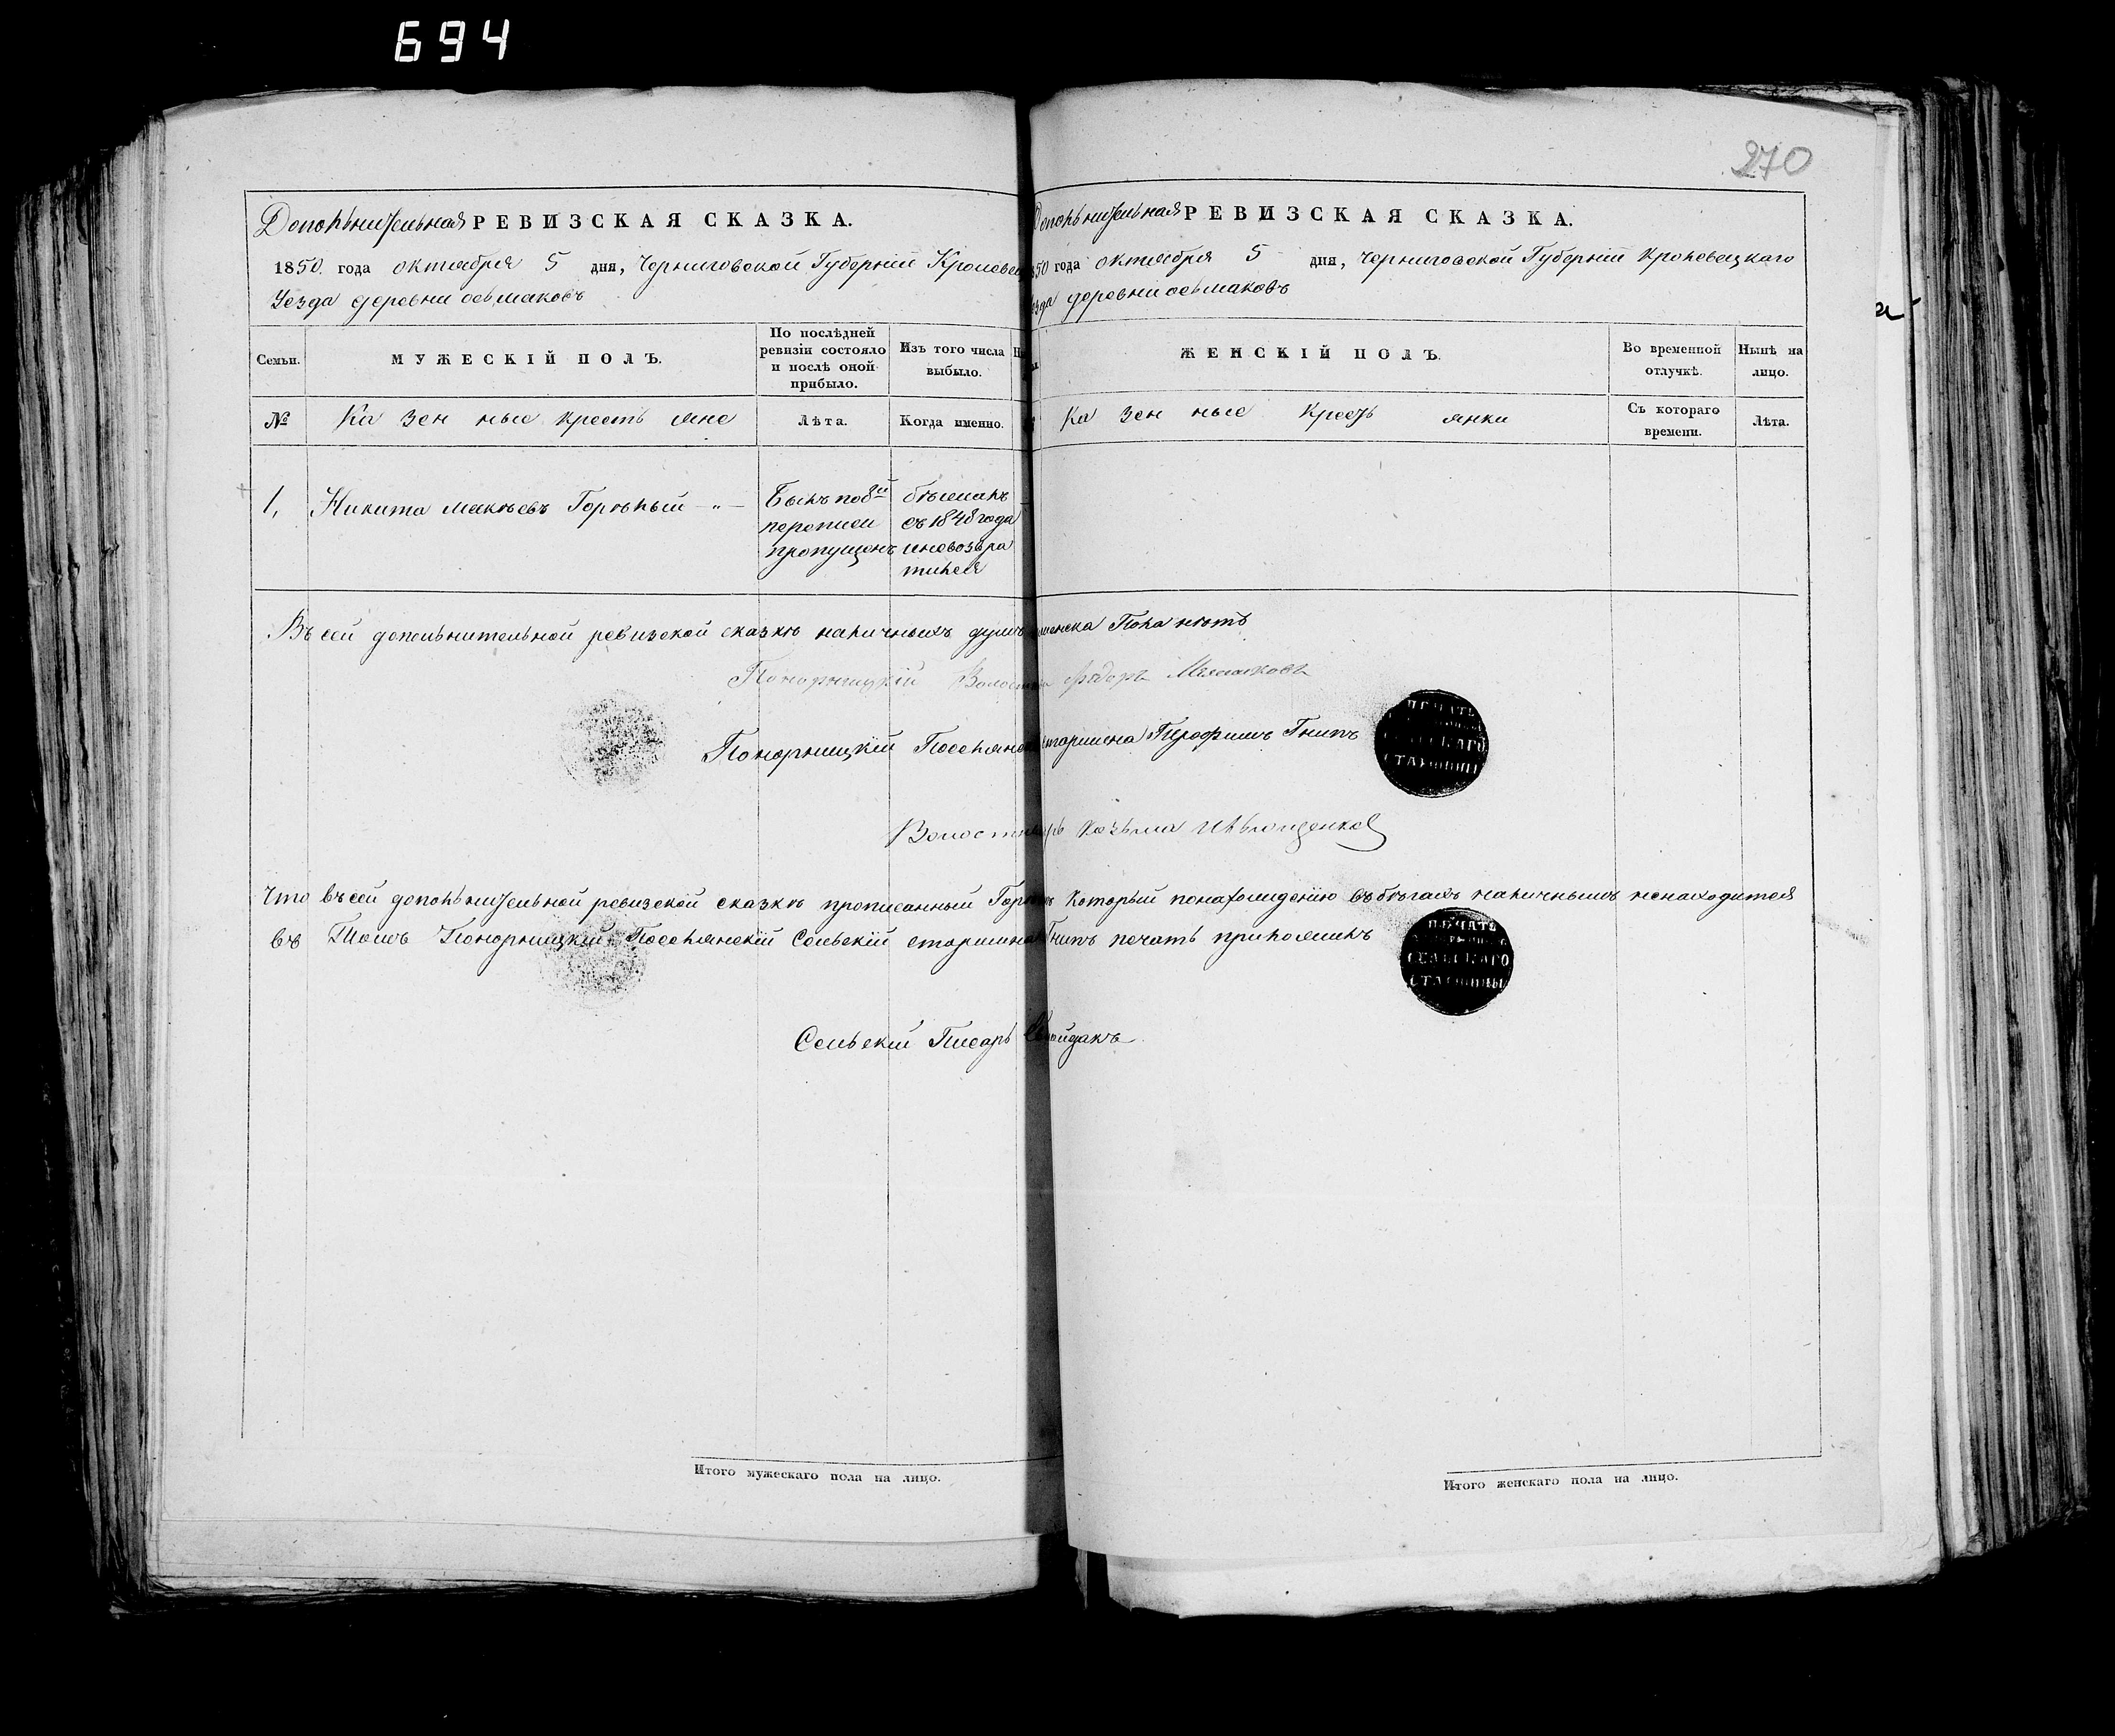 694
270
Дополнительная РЕВИЗСКАЯ СКАЗКА.
1850. года октября 5 дня, Черниговской Губернии Кролевец
Уезда деревни осьмаковъ
Семьи.
МУЖЕСКІЙ ПОЛЪ.
По послѣдней ревизіи состояло и послѣ оной прибыло.
Изъ того числа выбыло.
№
Ка зен ные кресть яне
Лѣта.
Когда именно.
1, Никита Макѣевъ Горѣлый
Былъ по 8й
переписи
пропущенъ
бѣжалъ
съ 1848 года
и невозвра
тился
Дополнительная РЕВИЗСКАЯ СКАЗКА.
1850 года октября 5 дня, Черниговской Губернии Кролевецкаго
Уезда деревни осьмаковъ
ЖЕНСКІЙ ПОЛЪ.
Во временной отлучкѣ.
Нынѣ на лицо.
Ка зен ные Кресть янки
Съ котораго времени.
Лѣта.
Въ сей дополнительной ревизской сказкѣ наличныхъ душъ женска Пола нѣтъ
Понорницкій Федоръ
Понорницкій Поселянск старшина Гнипъ
Козьма
Что въ сей дополнительной ревизской сказкѣ прописанный который понахождению въ бѣгахъ наличнымъ ненаходится
въ Томъ Понорницкій Поселянскій Сельскій старшина Гнипъ печать приложилъ
ПЕЧАТЬ
СЕЛЬСКАГО
СТАРШИНЫ
ПЕЧАТЬ
СЕЛЬСКАГО
СТАРШИНЫ
Сельскій Писарь
Итого мужескаго пола на лицо.
Итого женскаго пола на лицо.